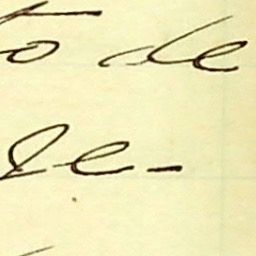 to de
se-